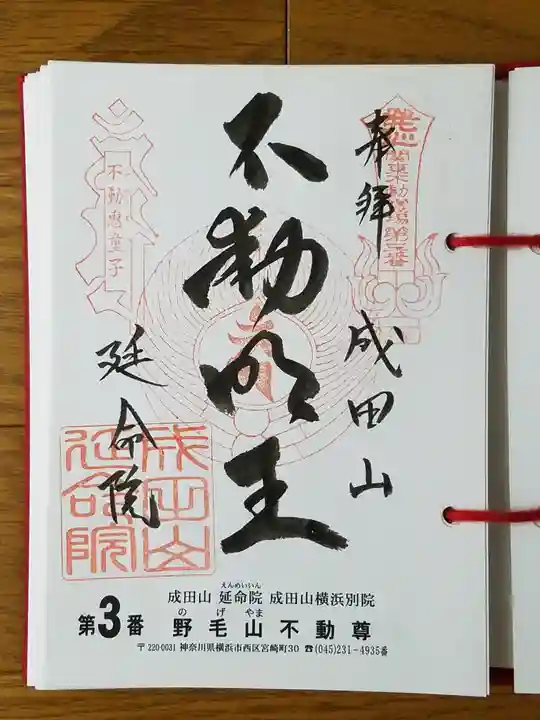 奉拝
成田山
不動明王
延命院
不動恵童子
関東
第三番
成田山
延命院
えんめいいん
成田山 延命院 成田山横浜別院
のげやま
第3番 野毛山不動尊
〒220-0031 神奈川県横浜市西区宮崎町30 ☎(045)231-4935番